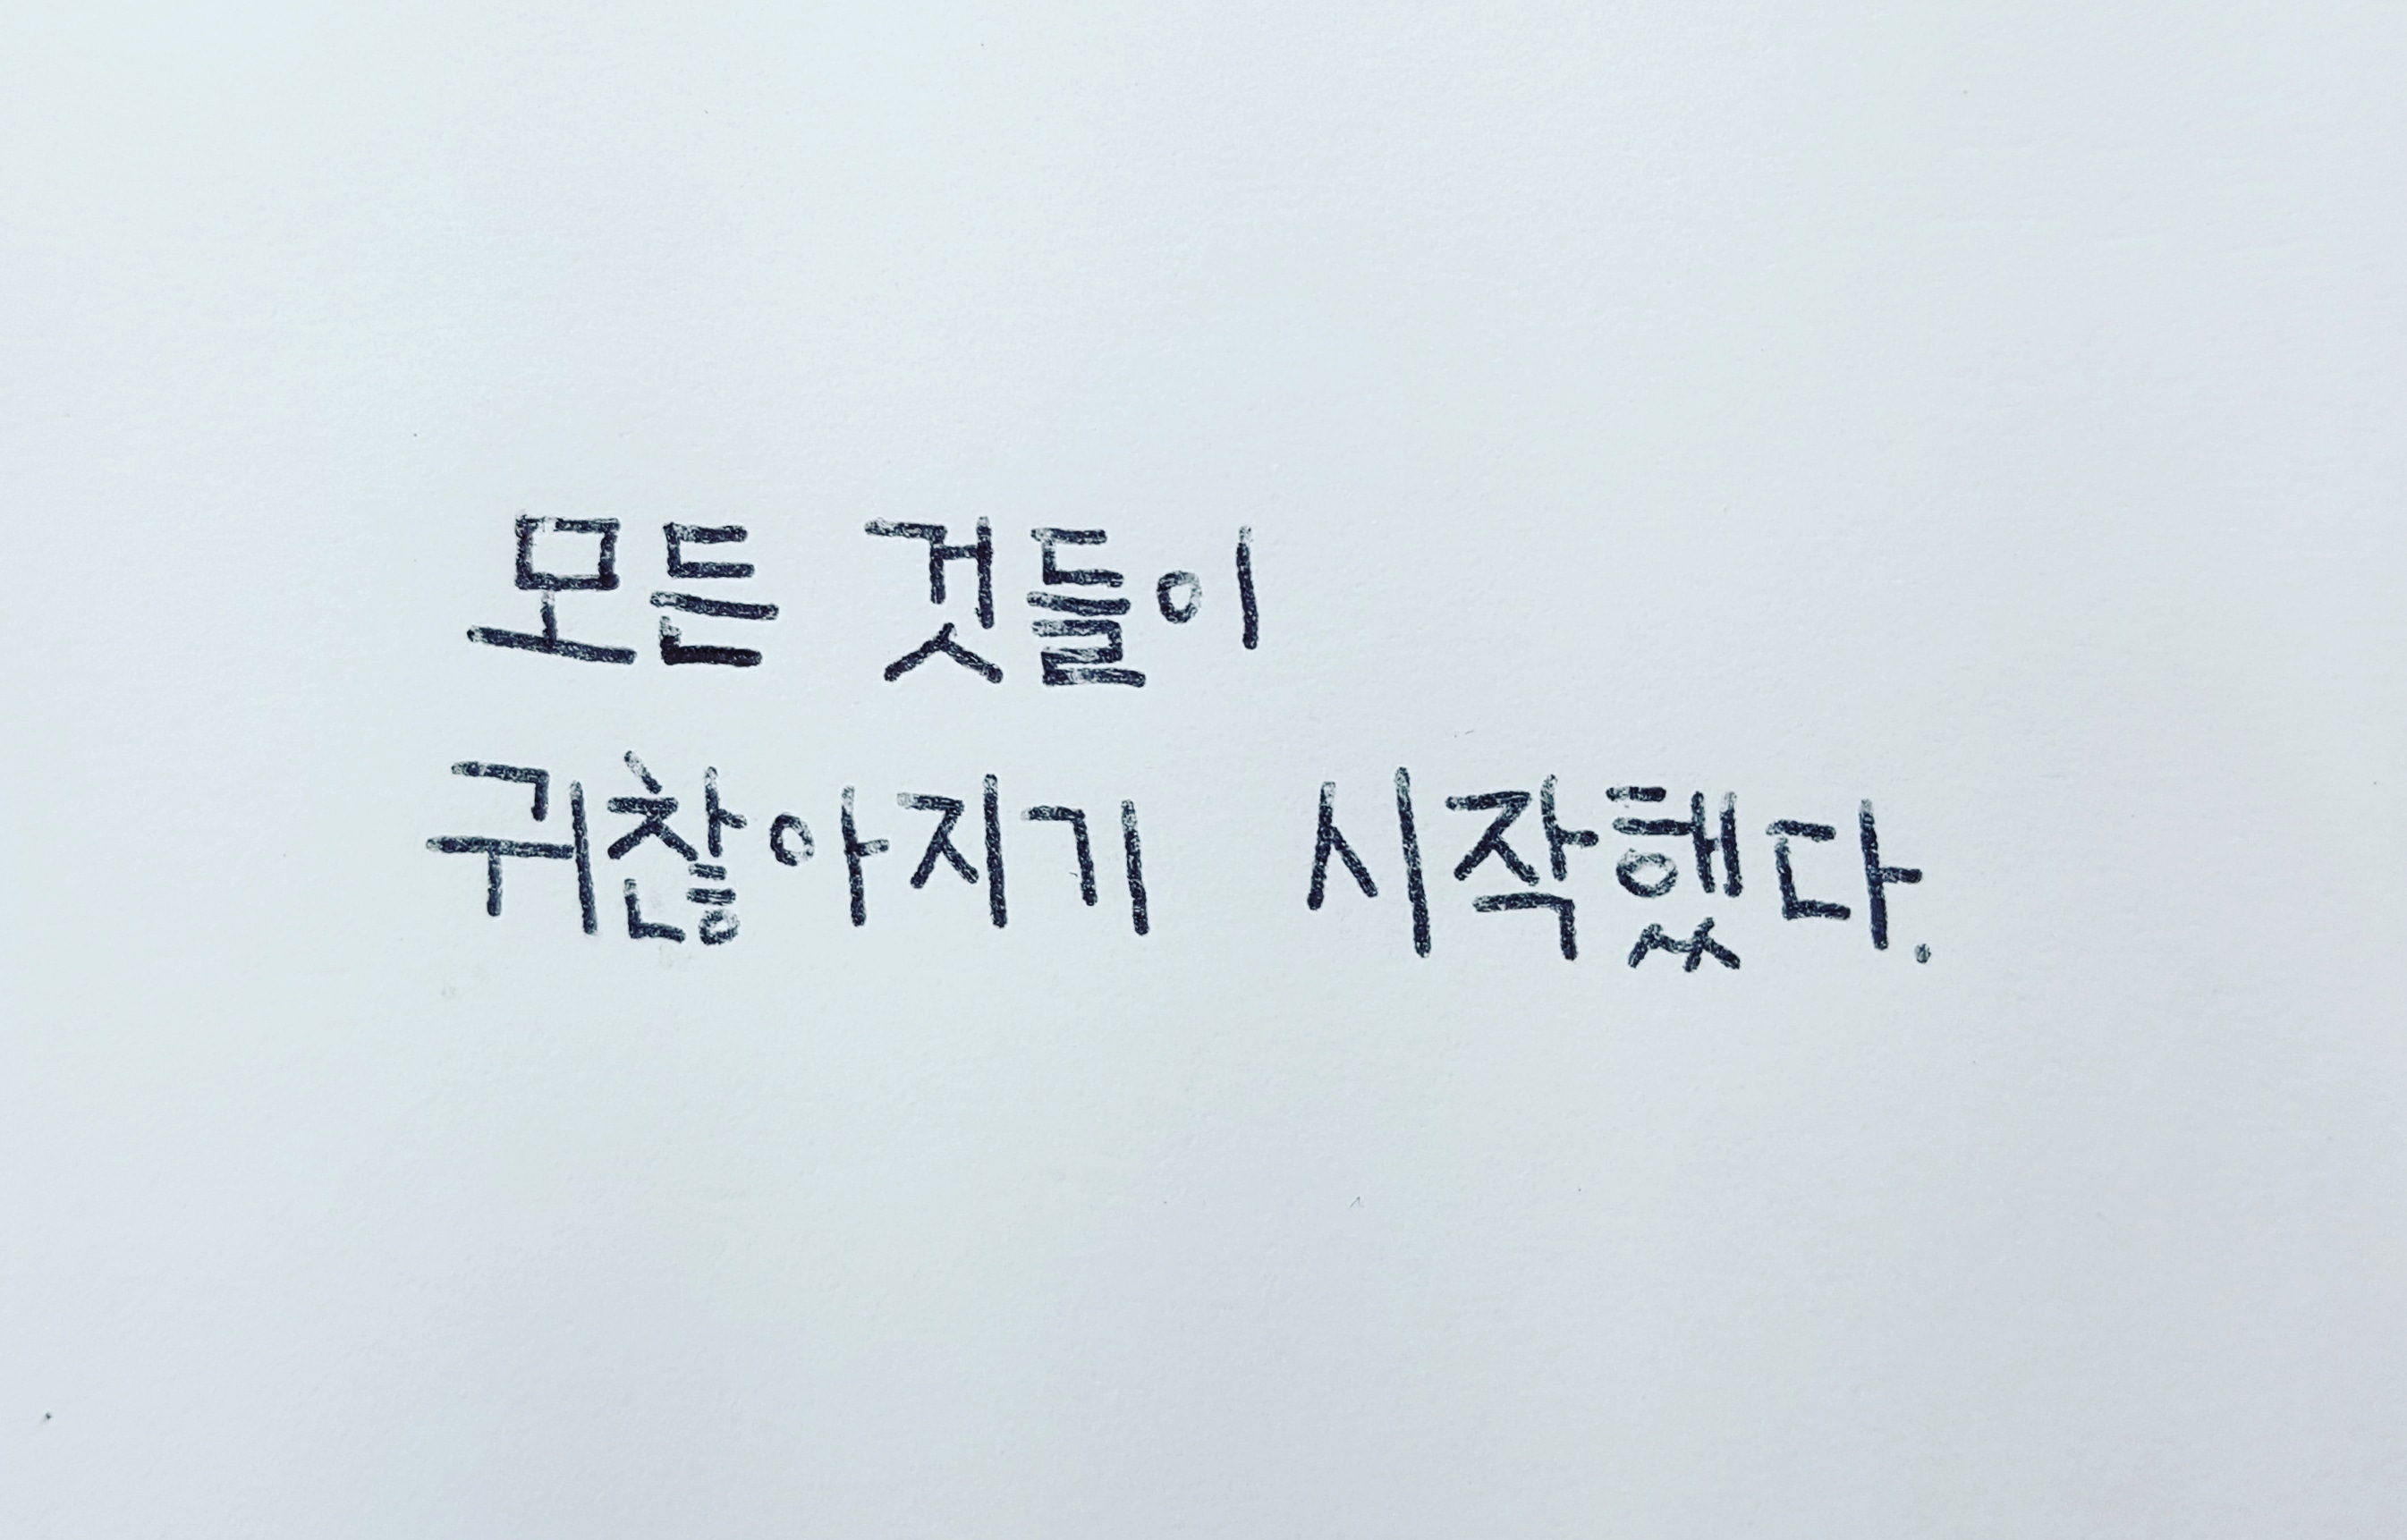 모든 것들이
귀찮아지기 시작했다.